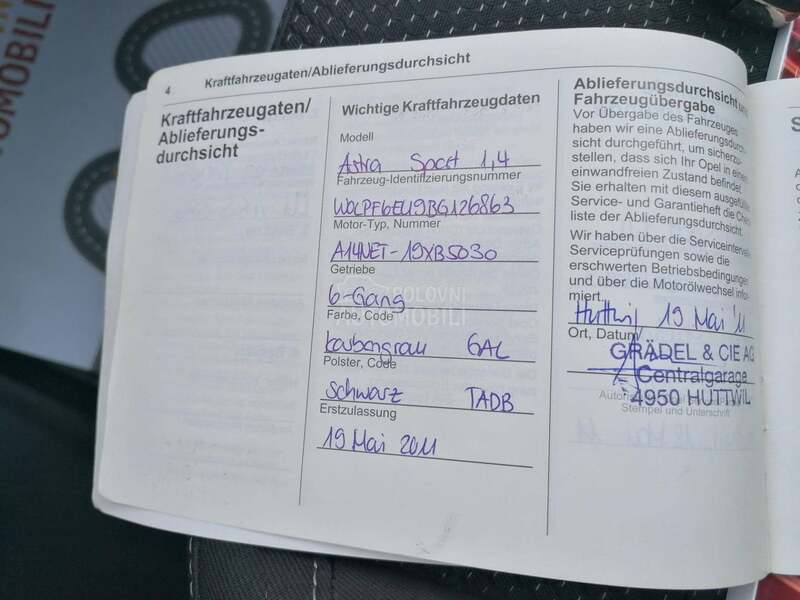 4
Kraftfahrzeugaten/Ablieferungsdurchsicht
Kraftfahrzeugaten/
Ablieferungs-
durchsicht
Wichtige Kraftfahrzeugdaten
Modell
Astra Sport 1,4
Fahrzeug-Identifizierungsnummer
W0LPF6EU9BG126863
Motor-Typ, Nummer
A14NET-19XB5030
Getriebe
6-Gang
Farbe, Code
GAL
Polster, Code
schwarz TADB
Erstzulassung
19 Mai 2011
Ablieferungsdurchsicht
Fahrzeugübergabe
Vor Übergabe des Fahrzeuges
haben wir eine
sicht durchgeführt, um
stellen, dass sich Ihr Opel in
einwandfreien Zustand befindet.
Sie erhalten mit diesem
Service- und Garantieheft die
liste der Ablieferungsdurchsicht.
Wir haben über die
Serviceprüfungen sowie die
erschwerten
und über die Motorölwechsel
miert.
Huttwil 19 Mai '11
Ort, Datum
GRÄDEL & CIE AG
Centralgarage
4950 HUTTWIL
Stempel und Unterschrift
POLOVNI
AUTOMOBILI